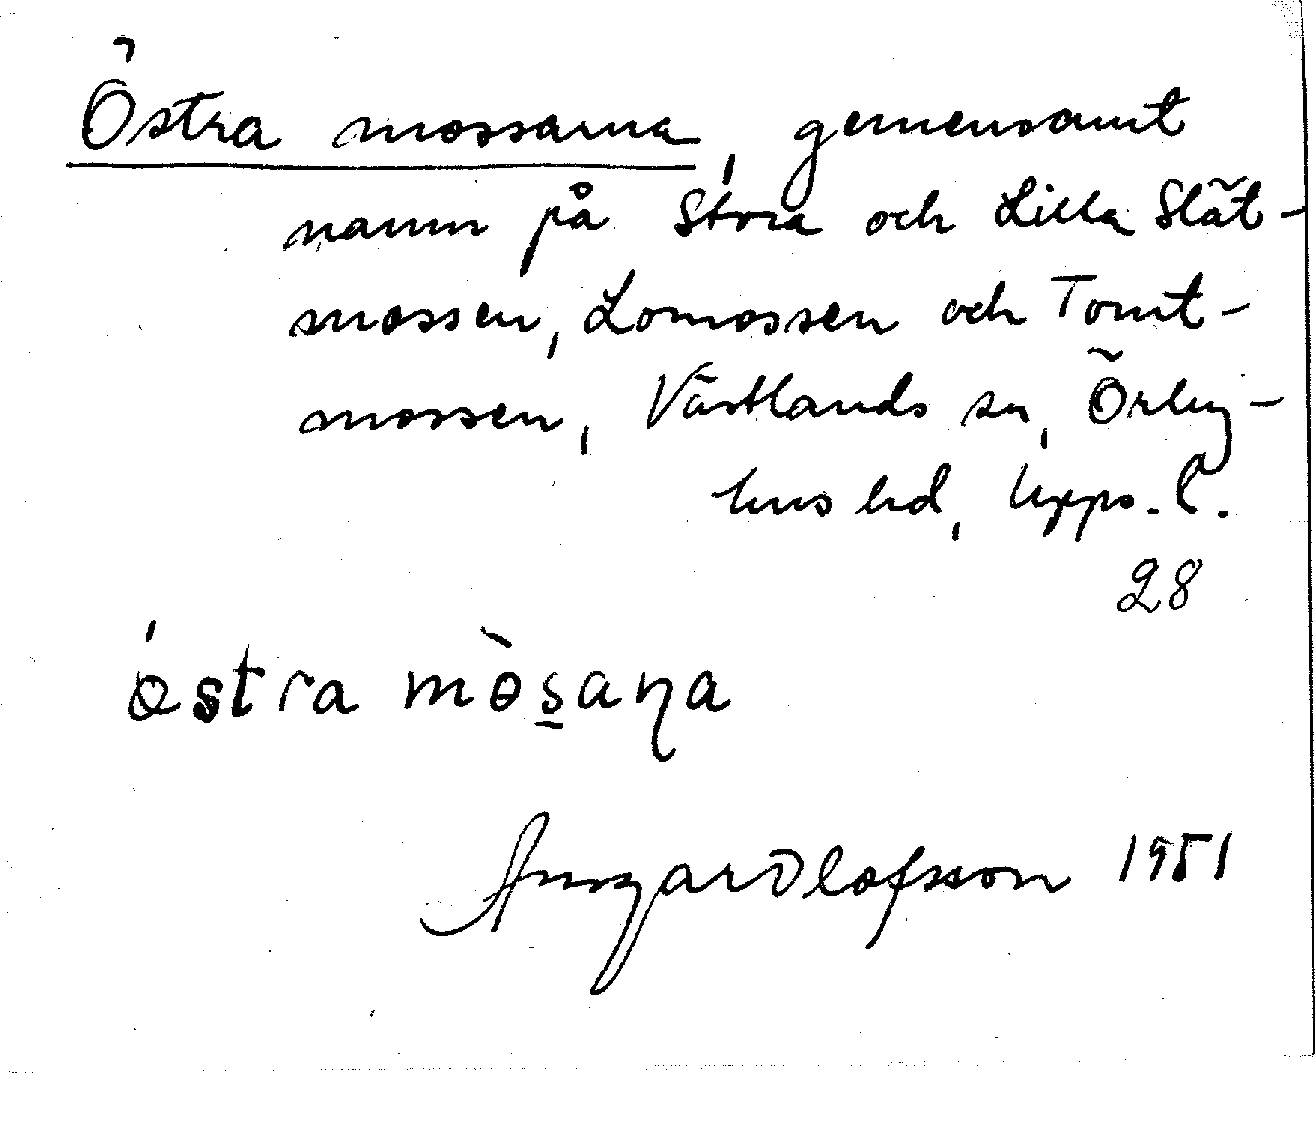 Östra mossarna, gemensamt
namn på Stora och Lilla Slät-
mossen, Lomossen och Tomt-
mossen, Västlands sn, Örby-
hus hd, Upps. l.
28
östra mòsaṇa
Ansgar Olofsson 1951